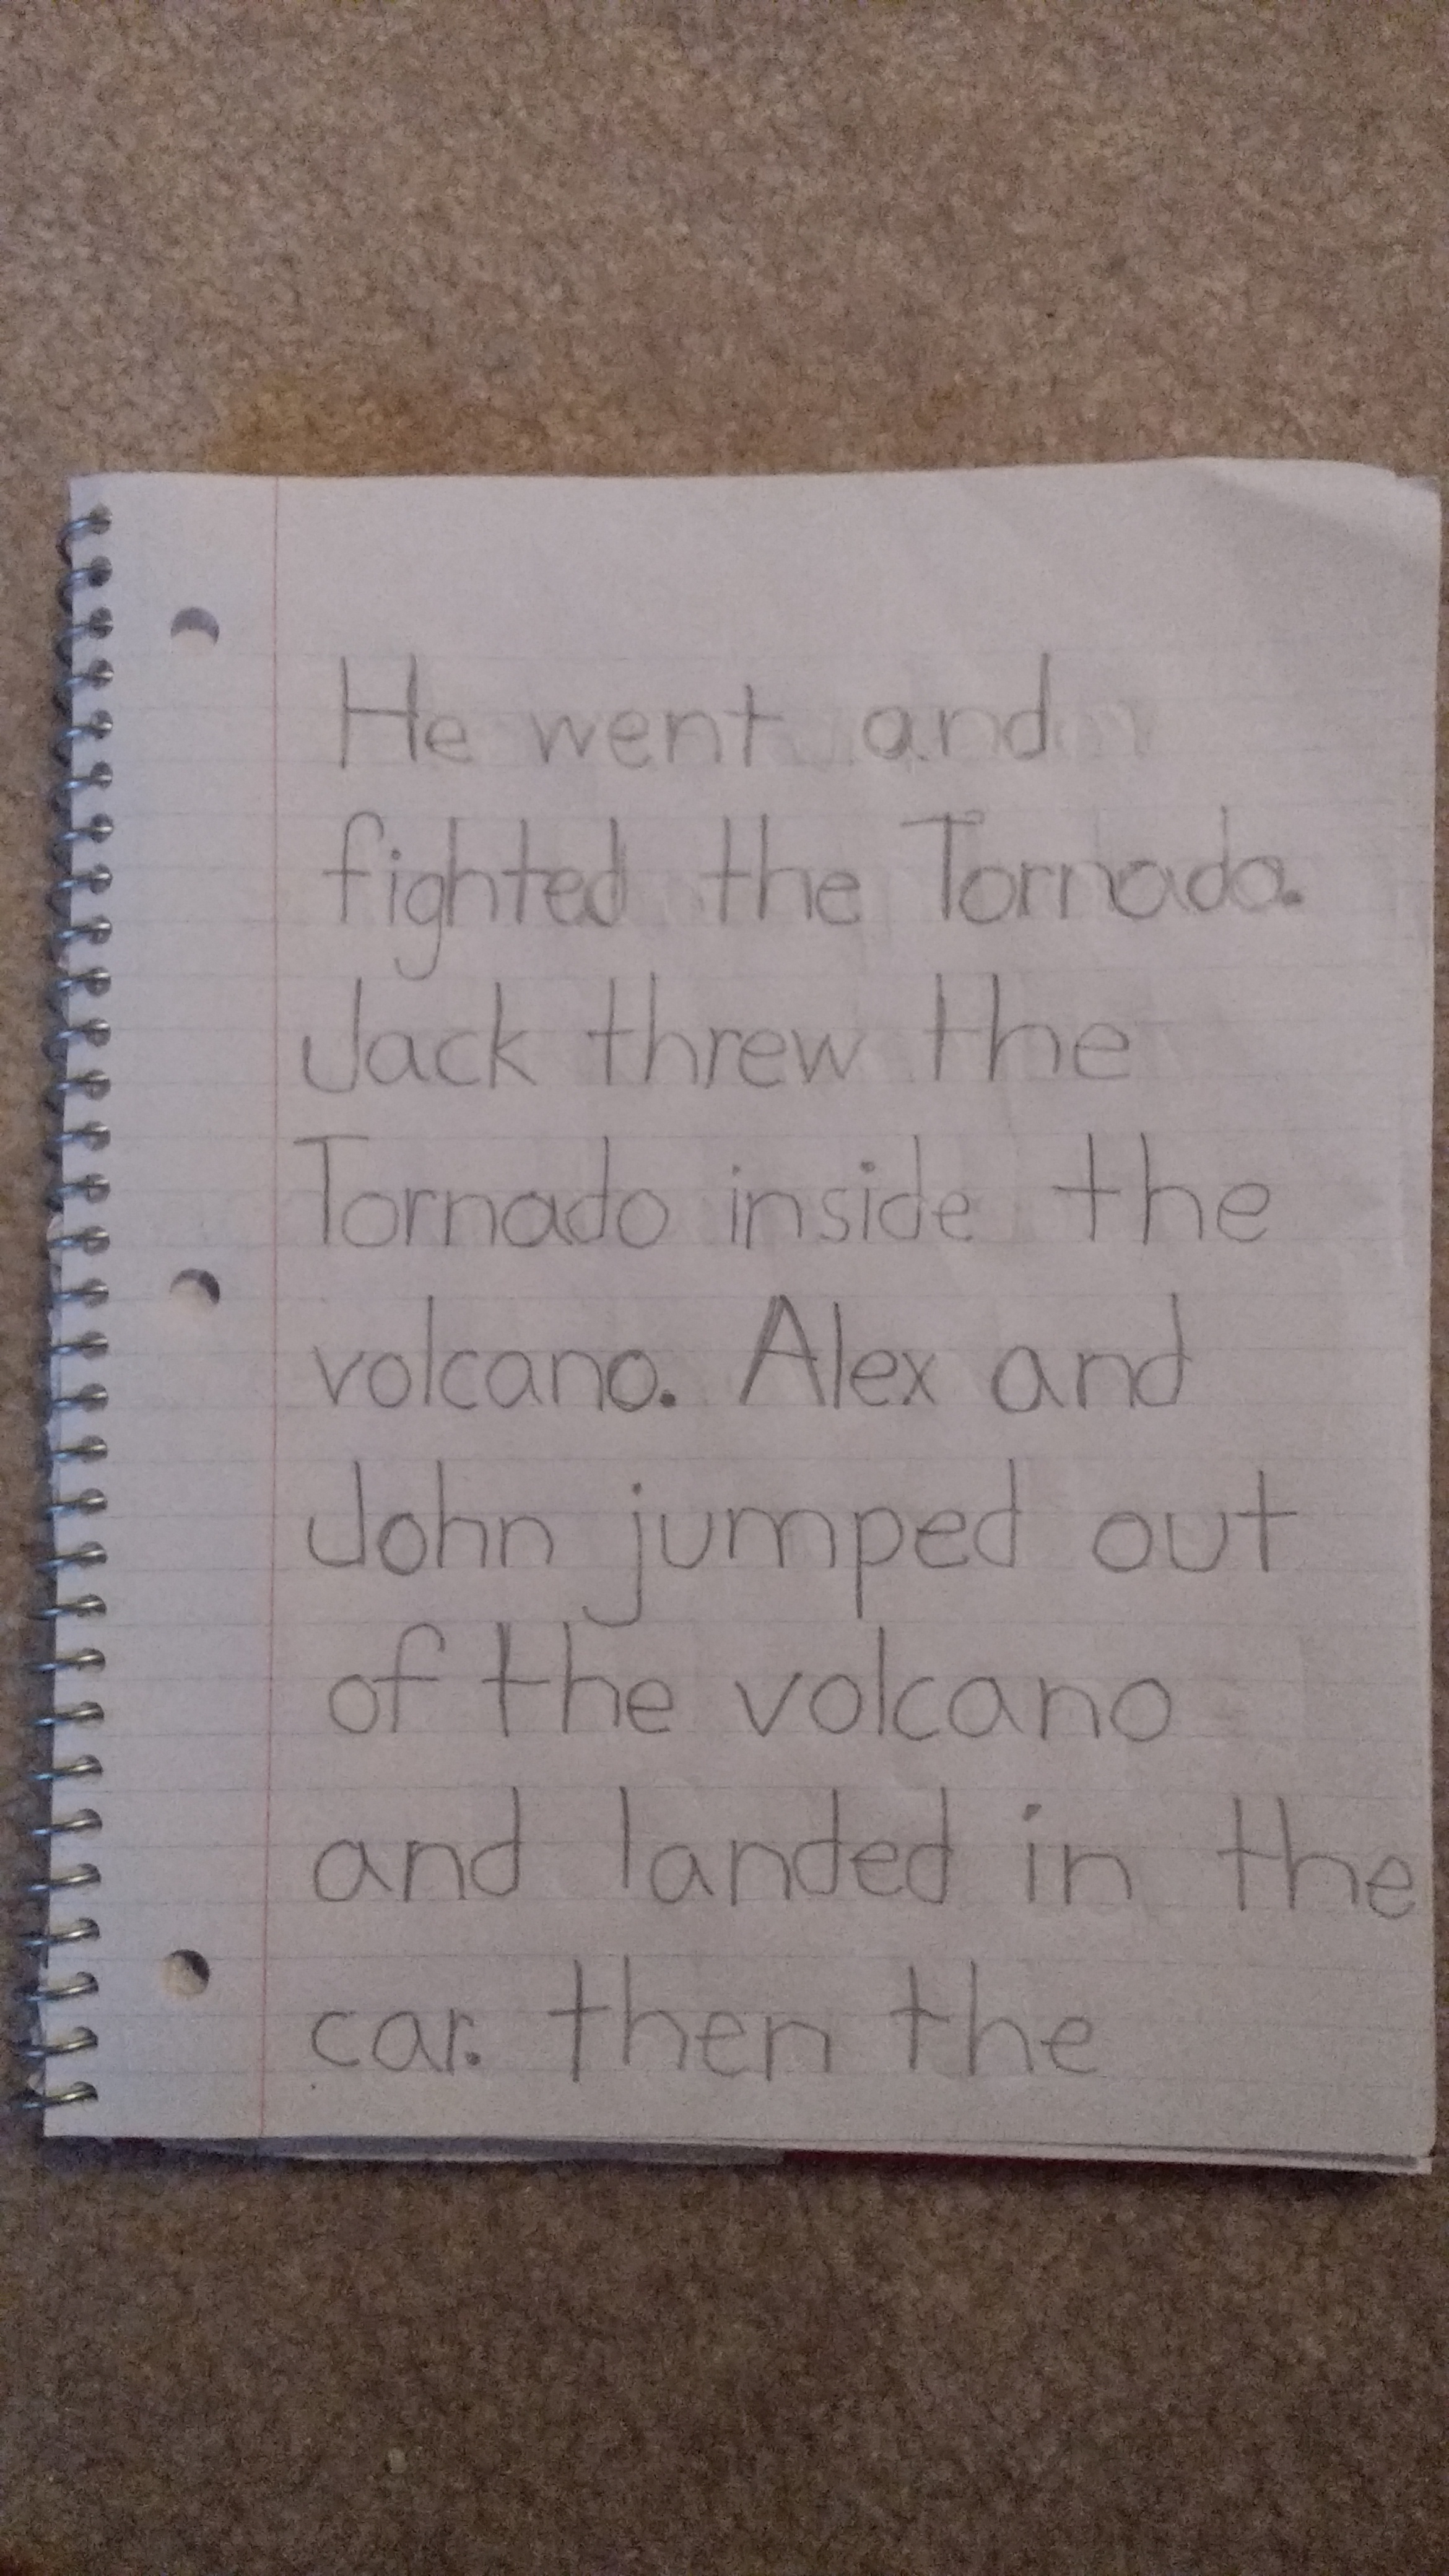 He went and
fighted the Tornado.
Jack threw the
Tornado inside the
volcano. Alex and
John jumped out
of the volcano
and landed in the
car. then the